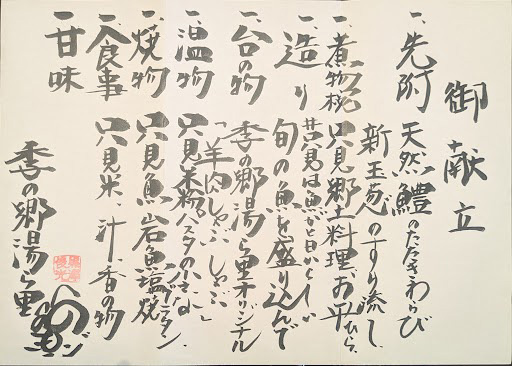 御献立
一、先附 天然鱧のたたきわらび
新玉葱のすり流し
一、煮物椀 只見郷土料理、お平ひら、
一、造り
旬の魚を盛り込んで
一、台の物 季の郷湯ら里オリジナル
「羊肉しゃぶしゃぶ」
一、温物
一、焼物 只見魚岩魚塩焼
一、食事 只見米、汁、香の物
一、甘味
季の郷湯ら里